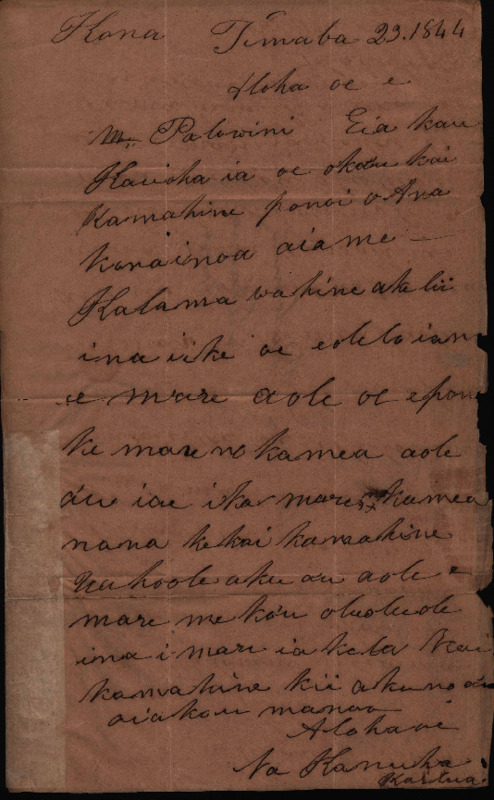 Kona Timaba 23. 1844
Aloha oe e
Mr Palowini Eia kau
Kauoha ia oe o kau kai
kamahine ponoi o Ana
kona inoa aia me
Kalama wahine alii
ina i ike oe e olelo iana
e mare aole oe e pono
ke mare no kamea aole
au i ae i ka mare kamea
nana ke kai kamahine
Ua hoole aku au aole e
mare me kou oluolu ole
ina i mare ia kela kai
kamahine kii aku no au
oia kou manao
Aloha oe
Na Kanuha
Kailua